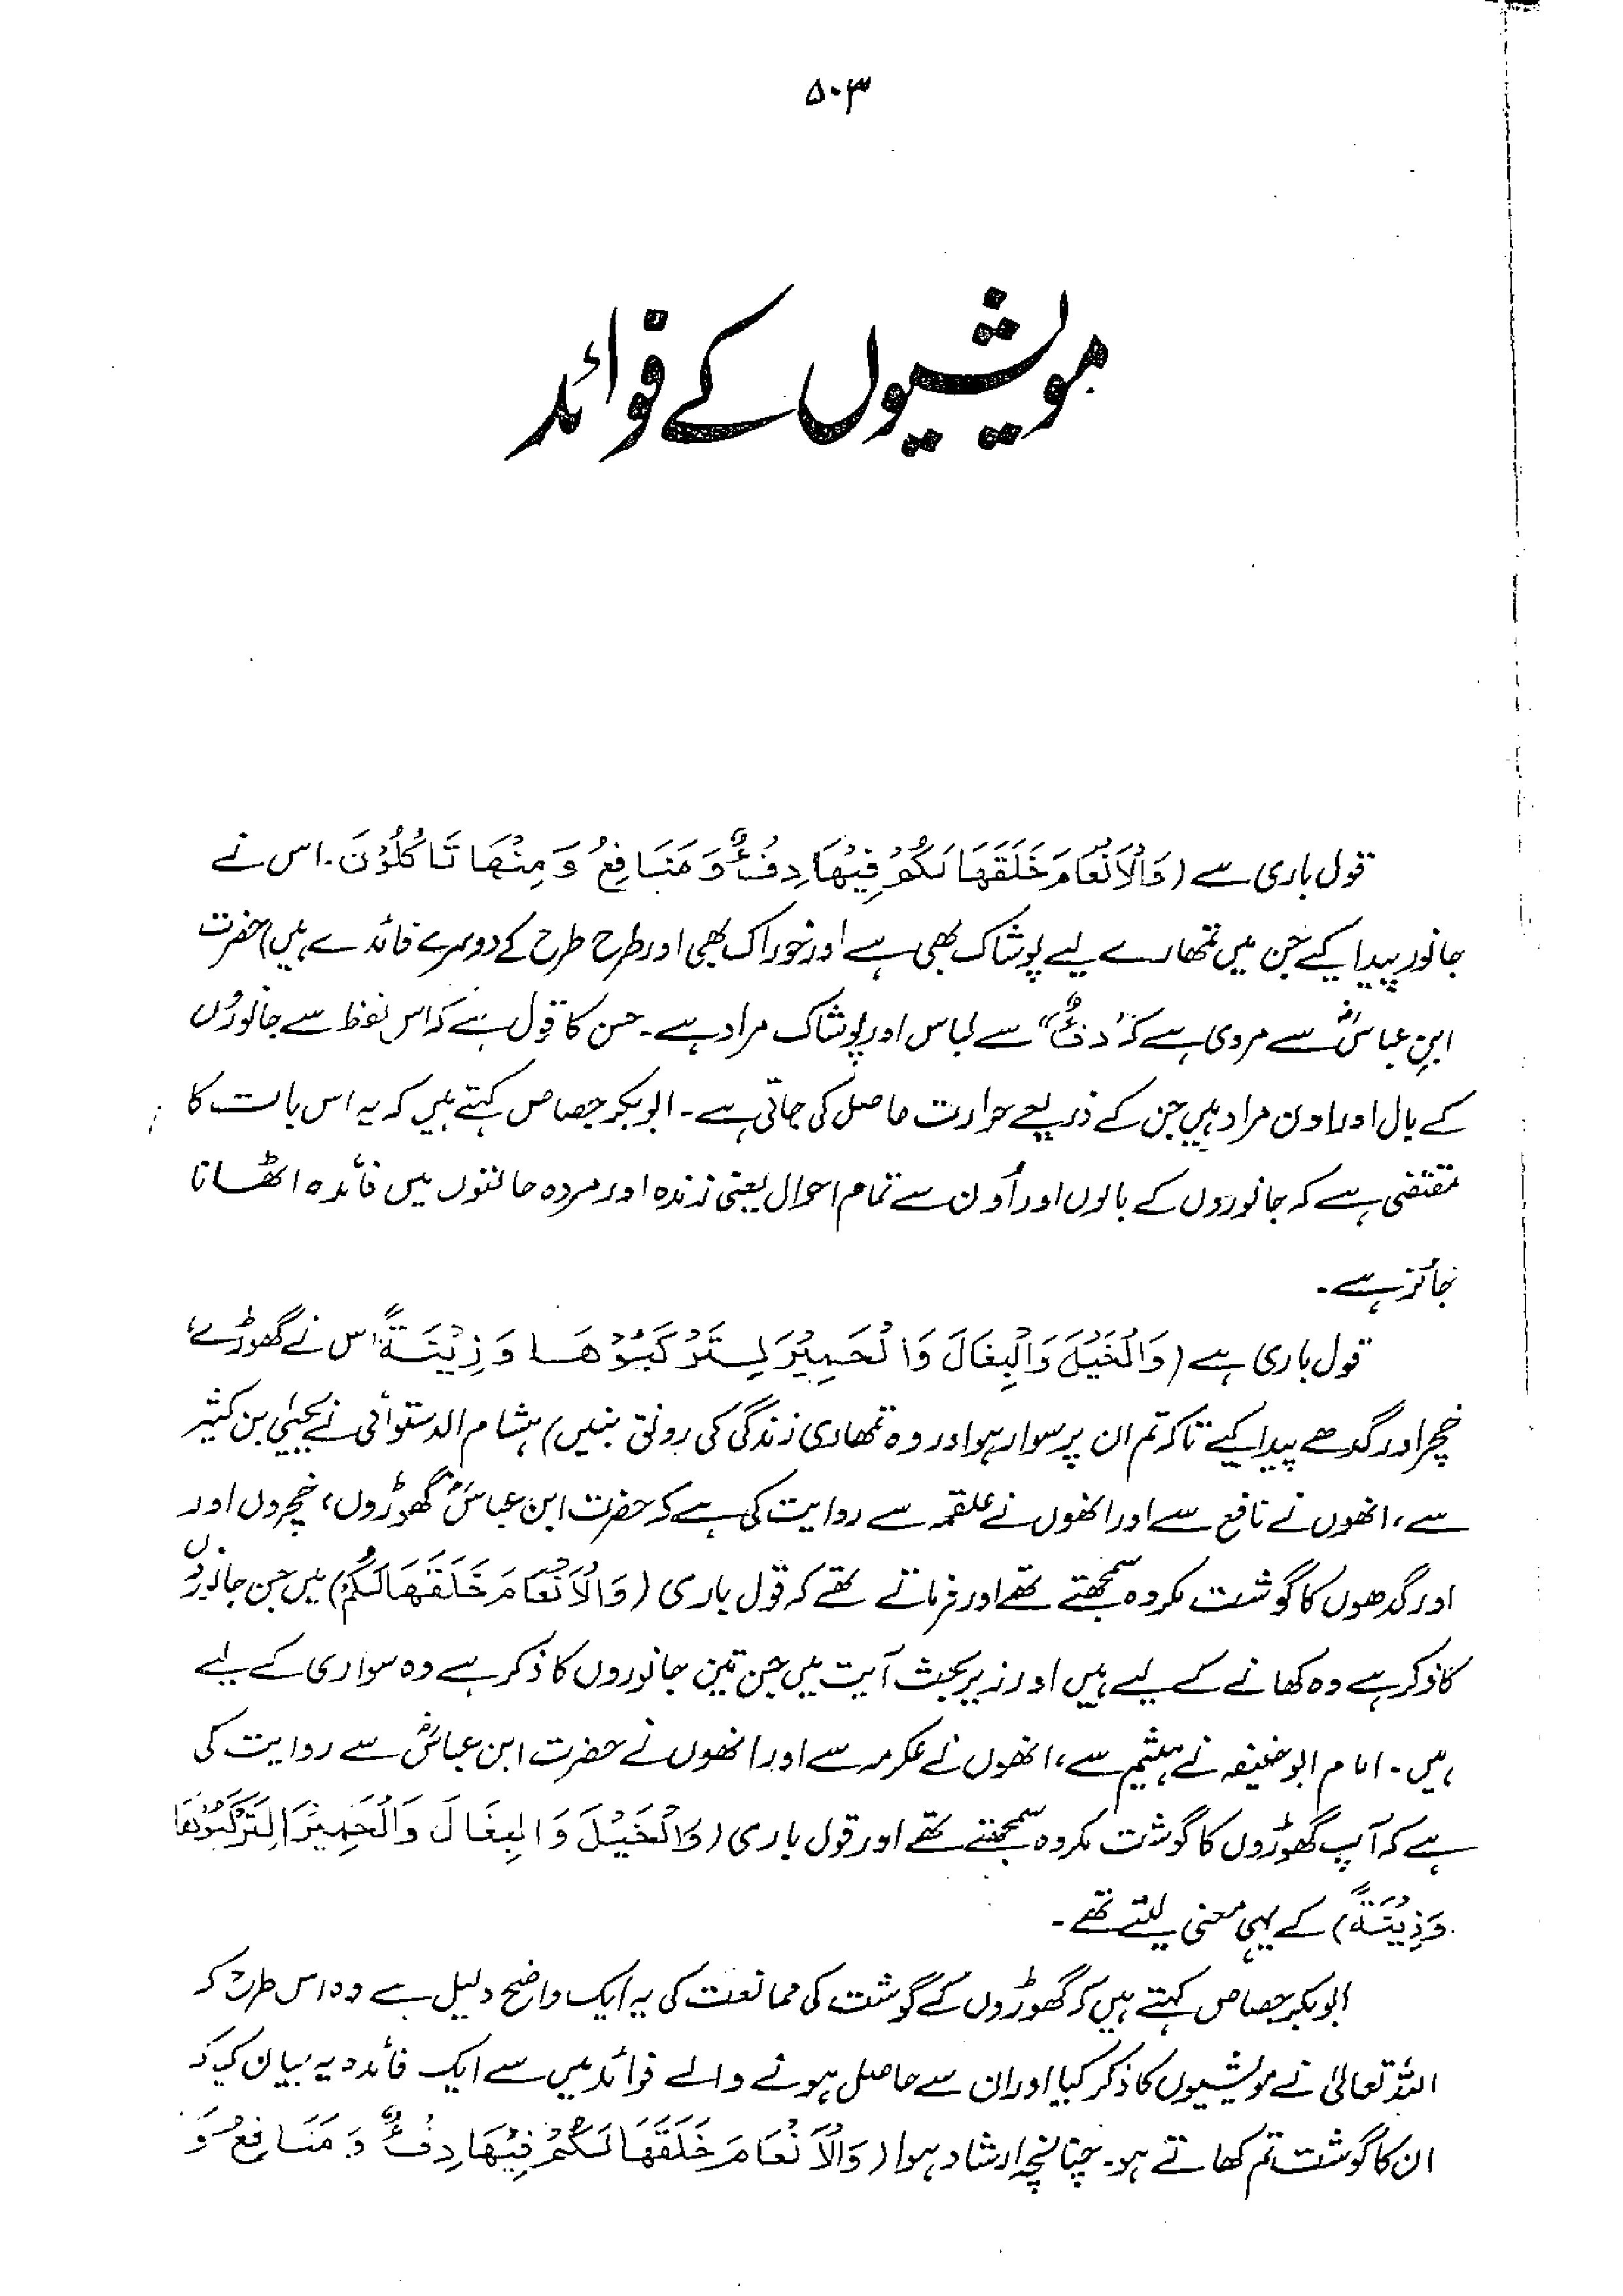 ۵۰۳
مویشیوں کے فوائد
قول باری سے (وَالْاَنْعَامَ خَلَقَهَا لَكُمْ فِيْهَا دِفْءٌ وَّ مَنَافِعُ وَ مِنْهَا تَاْكُلُوْنَ۔ اس نے
جانور پیدا کیے جن میں تمھارے لیے پوشاک بھی ہے اور خوراک بھی اور طرح طرح کے دوسرے فائدے ہیں) حضرت
ابنِ عباسؓ سے مروی ہے کہ "دفءٌ" سے لباس اور پوشاک مراد ہے۔ حسن کا قول ہے کہ اس لفظ سے جانوروں
کے بال اور اون مراد ہیں جن کے ذریعے حرارت حاصل کی جاتی ہے۔ ابوبکر جصاص کہتے ہیں کہ یہ اس بات کا
مقتضی ہے کہ جانوروں کے بالوں اور اُون سے تمام احوال یعنی زندہ اور مردہ حالتوں میں فائدہ اٹھانا
جائز ہے۔
قول باری ہے (وَالْخَيْلَ وَالْبِغَالَ وَالْحَمِيْرَ لِتَرْكَبُوْهَا وَ زِيْنَةً اس نے گھوڑے،
خچر اور گدھے پیدا کیے تاکہ تم ان پر سوار ہو اور وہ تمھاری زندگی کی رونق بنیں) ہشام الدستوائی نے یحییٰ بن کثیر
سے، انھوں نے نافع سے اور انھوں نے علقمہ سے روایت کی ہے کہ حضرت ابن عباسؓ گھوڑوں، خچروں اور
اور گدھوں کا گوشت مکروہ سمجھتے تھے اور فرماتے تھے کہ قول باری (وَالْاَنْعَامَ خَلَقَهَا لَكُمْ) میں جن جانوروں
کا ذکر ہے وہ کھانے کے لیے ہیں اور زیر بحث آیت میں جن تین جانوروں کا ذکر ہے وہ سواری کے لیے
ہیں۔ امام ابوحنیفہ نے ہثیم سے، انھوں نے عکرمہ سے اور انھوں نے حضرت ابن عباسؓ سے روایت کی
ہے کہ آپ گھوڑوں کا گوشت مکروہ سمجھتے تھے اور قول باری (وَالْخَيْلَ وَالْبِغَالَ وَالْحَمِيْرَ لِتَرْكَبُوْهَا
وَزِيْنَةً) کے یہی معنی لیتے تھے۔
ابوبکر جصاص کہتے ہیں کہ گھوڑوں کے گوشت کی ممانعت کی یہ ایک واضح دلیل ہے وہ اس طرح کہ
اللہ تعالیٰ نے مویشیوں کا ذکر کیا اور ان سے حاصل ہونے والے فوائد میں سے ایک فائدہ یہ بیان کیا کہ
ان کا گوشت تم کھاتے ہو۔ چنانچہ ارشاد ہوا (وَالْاَنْعَامَ خَلَقَهَا لَكُمْ فِيْهَا دِفْءٌ وَ مَنَافِعُ وَ